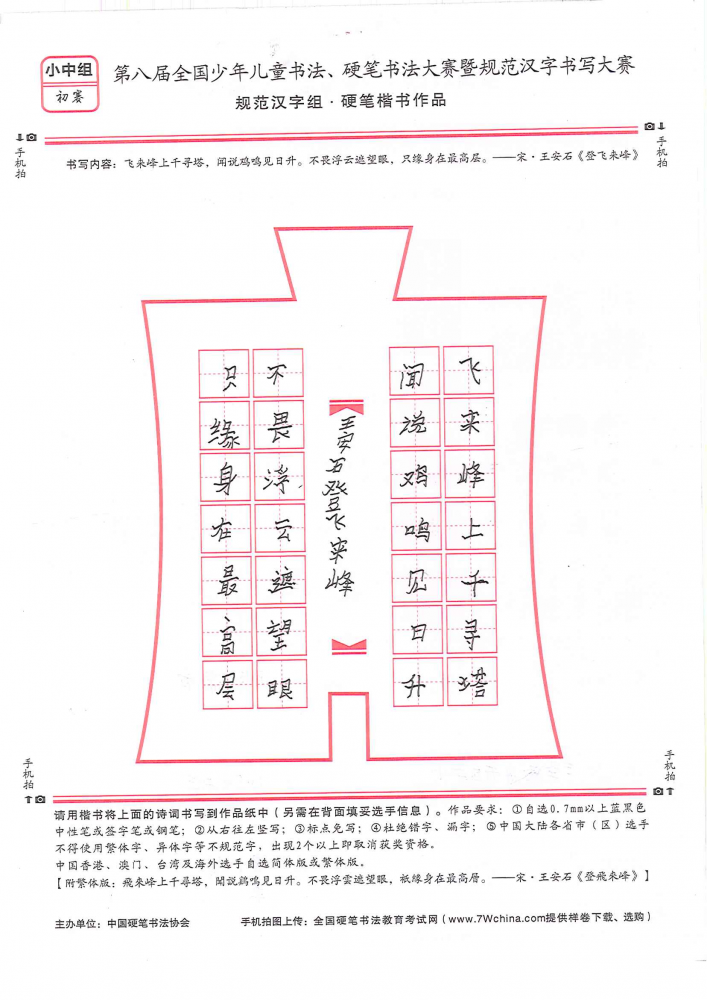 小中组
初赛
第八届全国少年儿童书法、硬笔书法大赛暨规范汉字书写大赛
规范汉字组·硬笔楷书作品
手机拍
手机拍
书写内容：飞来峰上千寻塔，闻说鸡鸣见日升。不畏浮云遮望眼，只缘身在最高层。——宋·王安石《登飞来峰》
飞来峰上千寻塔
闻说鸡鸣见日升
王安石登飞来峰
不畏浮云遮望眼
只缘身在最高层
手机拍
手机拍
请用楷书将上面的诗词书写到作品纸中（另需在背面填妥选手信息）。作品要求：①自选0.7mm以上蓝黑色
中性笔或签字笔或钢笔；②从右往左竖写；③标点免写；④杜绝错字、漏字；⑤中国大陆各省市（区）选手
不得使用繁体字、异体字等不规范字，出现2个以上即取消获奖资格。
中国香港、澳门、台湾及海外选手自选简体版或繁体版。
【附繁体版：飛來峰上千尋塔，聞說鷄鳴見日升。不畏浮雲遮望眼，衹緣身在最高層。——宋·王安石《登飛來峰》】
主办单位：中国硬笔书法协会
手机拍图上传：全国硬笔书法教育考试网（www.7Wchina.com提供样卷下载、选购）